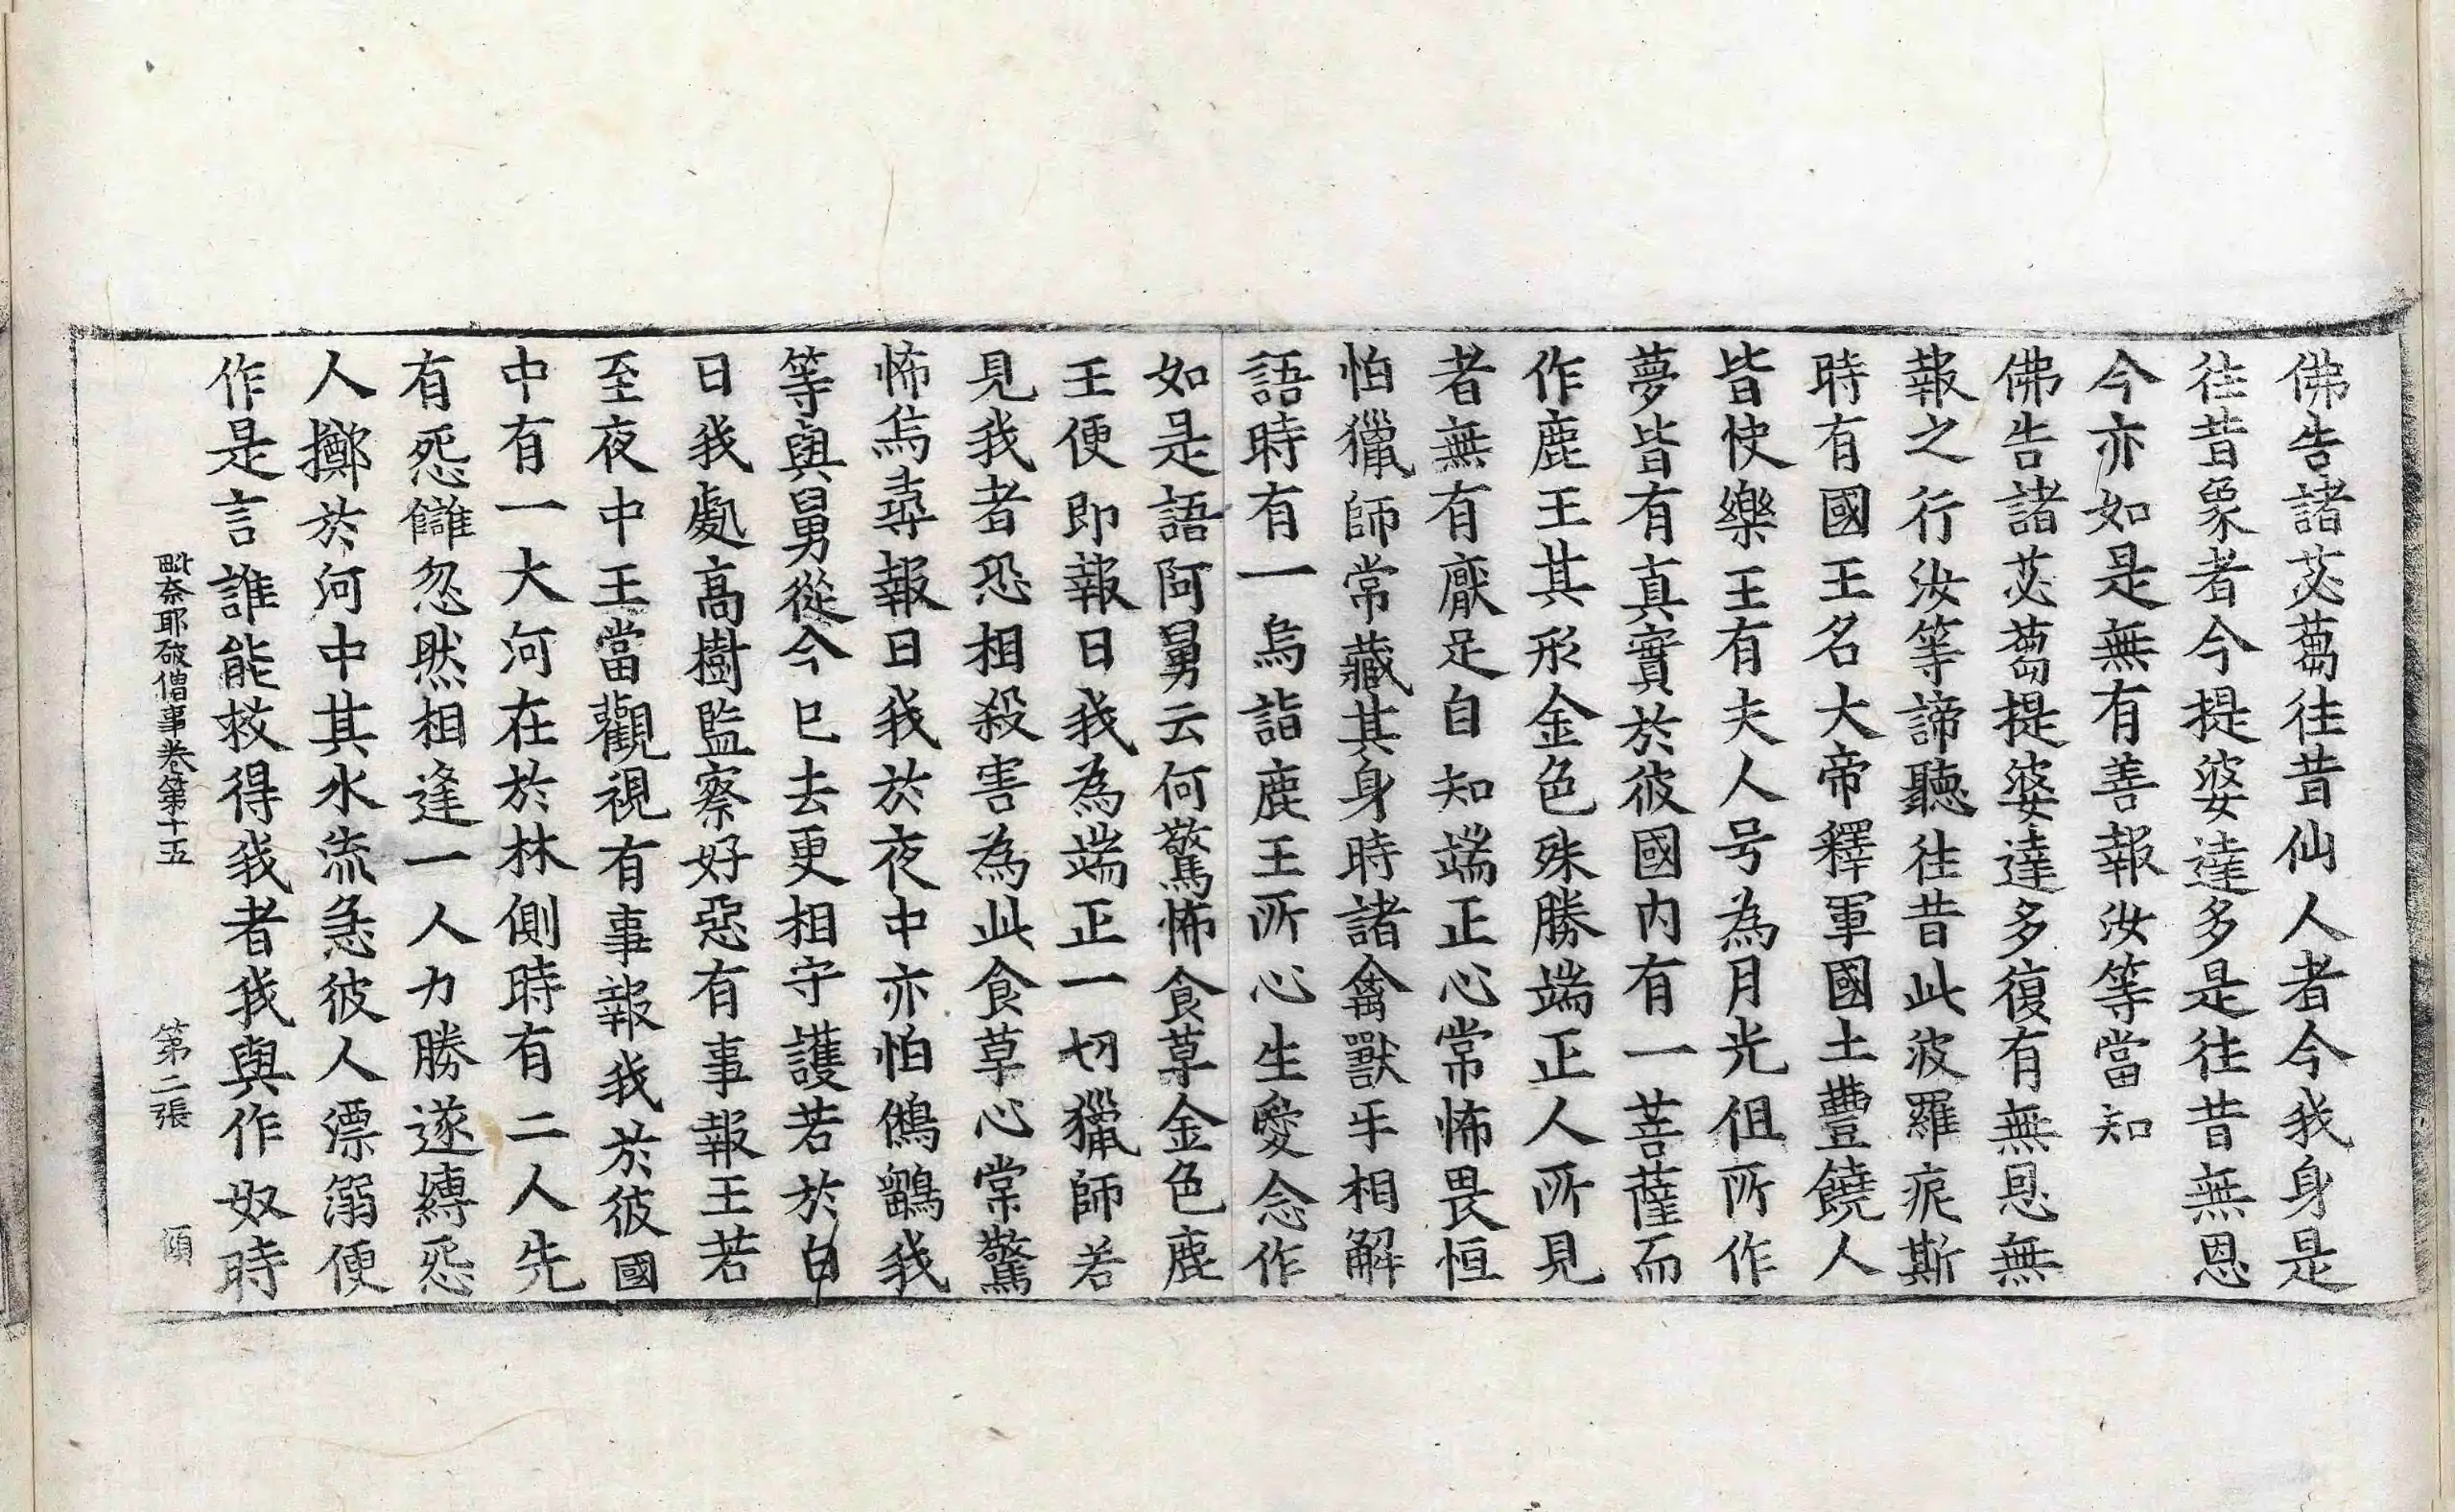 佛告諸苾蒭往昔仙人者今我身是
往昔象者今提婆達多是往昔無恩
今亦如是無有善報汝等當知
佛告諸苾蒭提婆達多復有無恩無
報之行汝等諦聽往昔此波羅痆斯
時有國王名大帝釋軍國土豐饒人
皆快樂王有夫人号為月光但所作
夢皆有真實於彼國内有一菩薩而
作鹿王其形金色殊勝端正人所見
者無有厭足自知端正心常怖畏恒
怕獵師常藏其身時諸禽獸手相解
語時有一烏詣鹿王所心生愛念作
如是語阿舅云何驚怖食草金色鹿
王便即報曰我為端正一切獵師若
見我者恐相殺害為此食草心常驚
怖烏尋報曰我於夜中亦怕鵂鶹我
等與舅從今已去更相守護若於白
日我處高樹監察好惡有事報王若
至夜中王當觀視有事報我於彼國
中有一大河在於林側時有二人先
有怨讎忽然相逢一人力勝遂縛怨
人擲於河中其水流急彼人漂溺便
作是言誰能救得我者我與作奴時
毗奈耶破僧事卷第十五 第二張